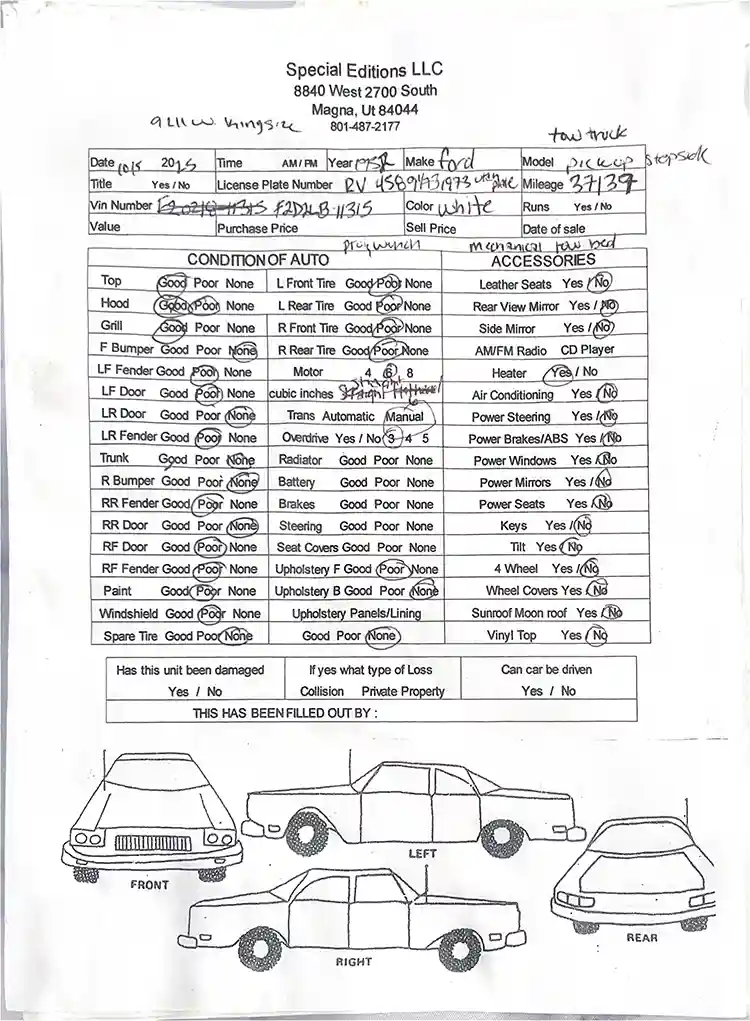 Special Editions LLC
8840 West 2700 South
Magna, Ut 84044
801-487-2177
9211 W. Kingsize
tow truck
Date 10/5 2015 Time AM/PM Year 1952 Make ford Model pickup stepside
Title Yes / No License Plate Number RV 4589143 1973 utah plate Mileage 37139
Vin Number F2D2LB-11315 Color white Runs Yes / No
Value Purchase Price Sell Price Date of sale
mechanical tow bed
CONDITION OF AUTO ACCESSORIES
Top Good Poor None L Front Tire Good Poor None Leather Seats Yes / No
Hood Good Poor None L Rear Tire Good Poor None Rear View Mirror Yes / No
Grill Good Poor None R Front Tire Good Poor None Side Mirror Yes / No
F Bumper Good Poor None R Rear Tire Good Poor None AM/FM Radio CD Player
LF Fender Good Poor None Motor 4 6 8 Heater Yes / No
straight
LF Door Good Poor None cubic inches Air Conditioning Yes / No
6
LR Door Good Poor None Trans Automatic Manual Power Steering Yes / No
LR Fender Good Poor None Overdrive Yes / No 3 4 5 Power Brakes/ABS Yes / No
Trunk Good Poor None Radiator Good Poor None Power Windows Yes / No
R Bumper Good Poor None Battery Good Poor None Power Mirrors Yes / No
RR Fender Good Poor None Brakes Good Poor None Power Seats Yes / No
RR Door Good Poor None Steering Good Poor None Keys Yes / No
RF Door Good Poor None Seat Covers Good Poor None Tilt Yes / No
RF Fender Good Poor None Upholstery F Good Poor None 4 Wheel Yes / No
Paint Good Poor None Upholstery B Good Poor None Wheel Covers Yes / No
Windshield Good Poor None Upholstery Panels/Lining Sunroof Moon roof Yes / No
Spare Tire Good Poor None Good Poor None Vinyl Top Yes / No
Has this unit been damaged If yes what type of Loss Can car be driven
Yes / No Collision Private Property Yes / No
THIS HAS BEEN FILLED OUT BY :
LEFT
FRONT
REAR
RIGHT